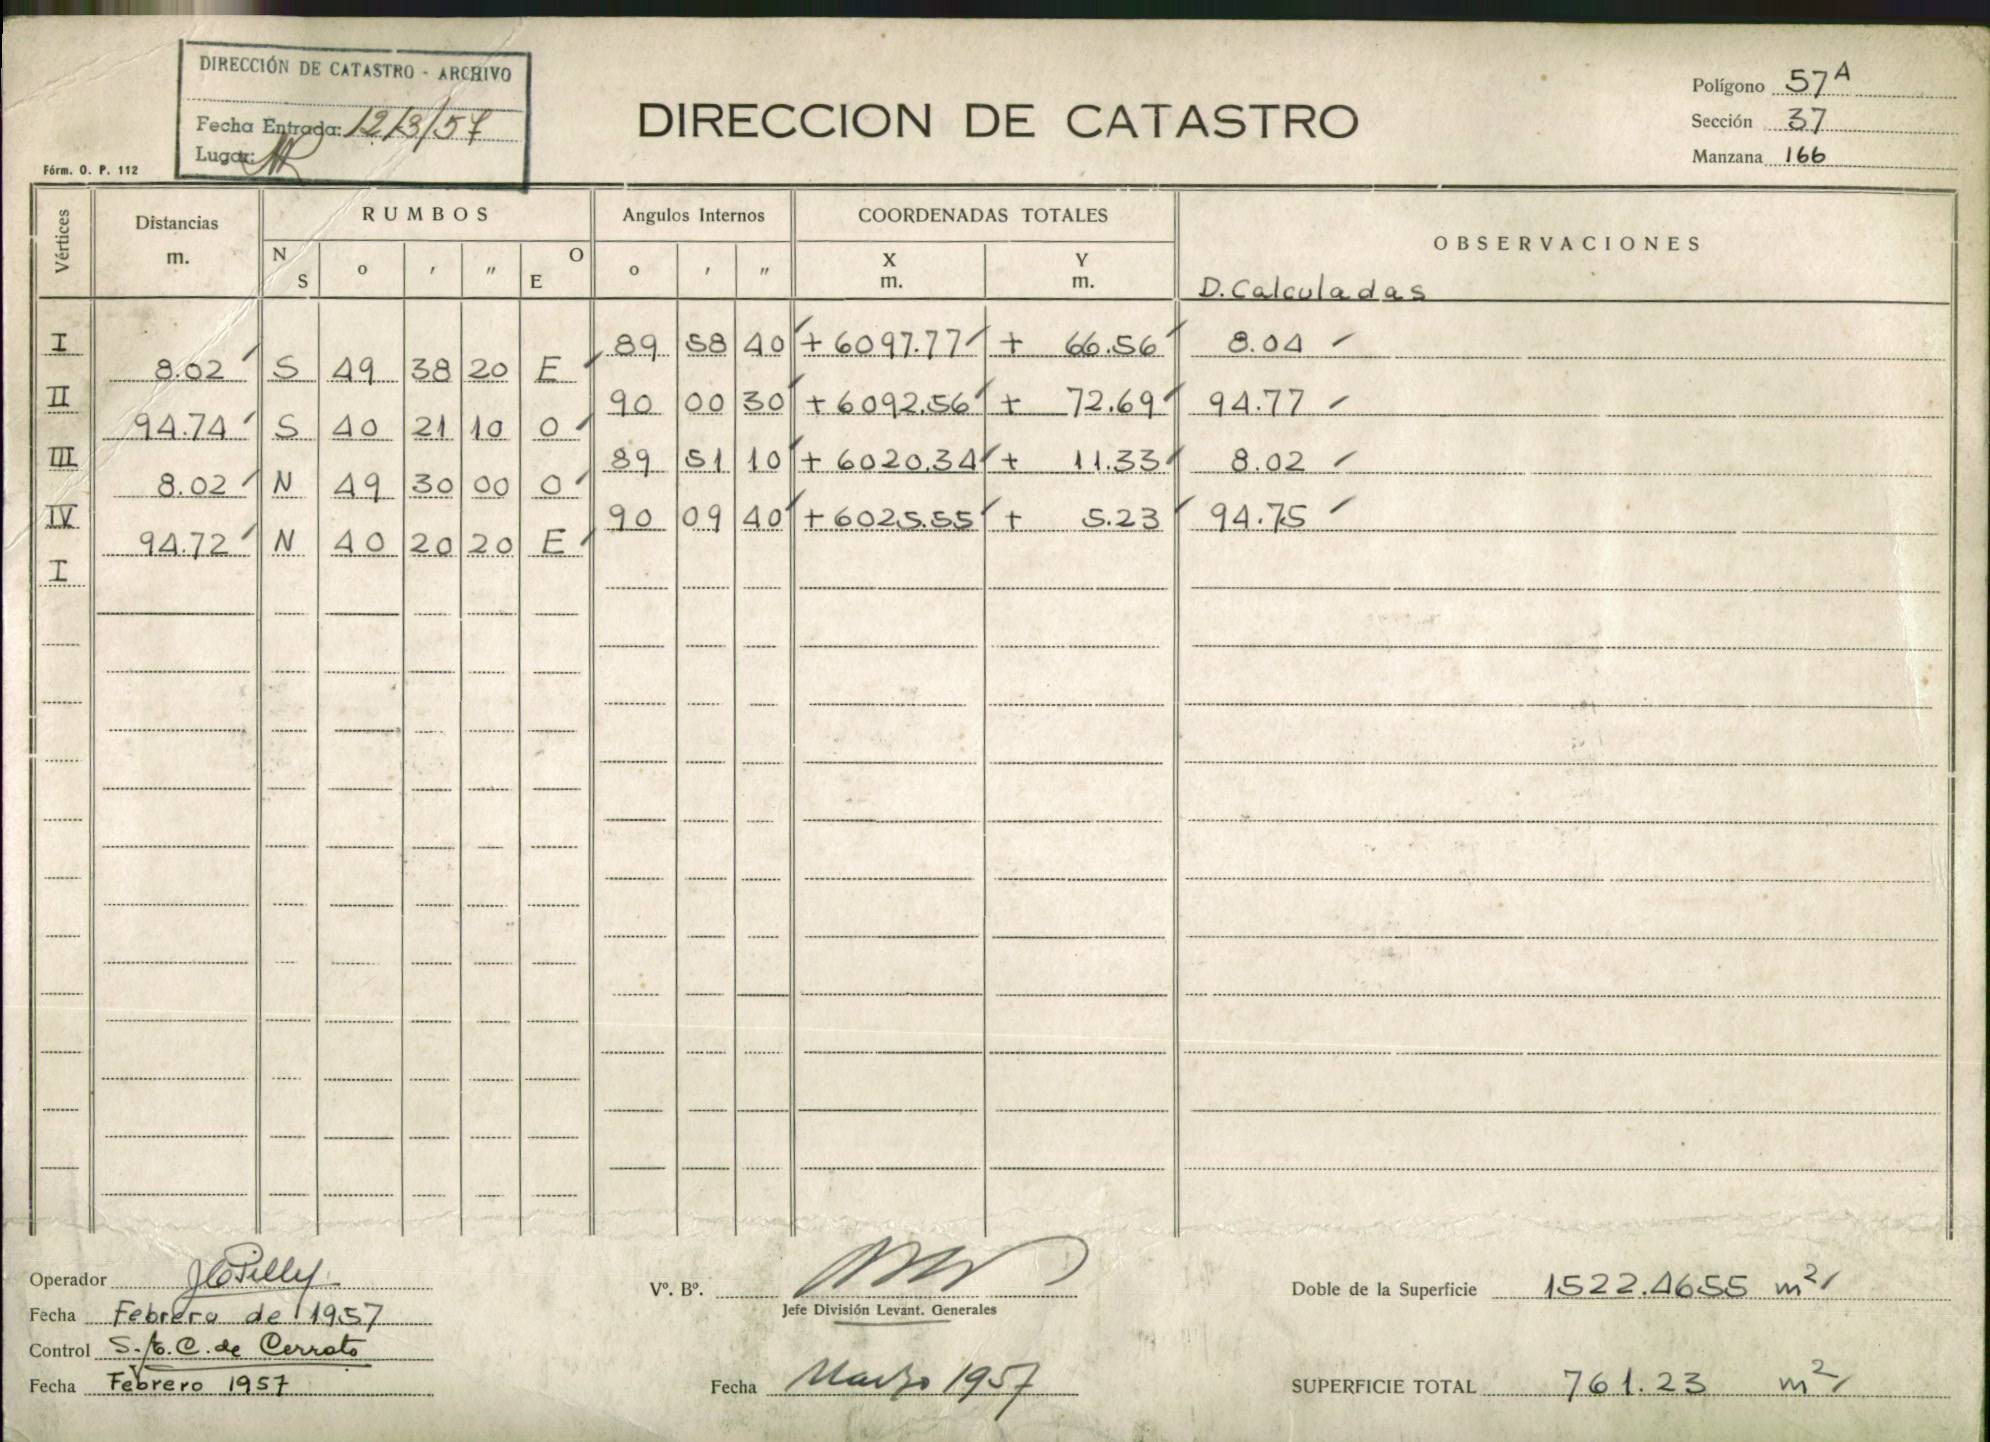 DIRECCIÓN DE CATASTRO - ARCHIVO
Fecha Entrada: 12/3/57
Lugar:
Fórm. O. P. 112
DIRECCION DE CATASTRO
Polígono 57A
Sección 37
Manzana 166
Vértices Distancias m. RUMBOS Angulos Internos COORDENADAS TOTALES OBSERVACIONES
N S o ' " O E o ' " X m. Y m. D. Calculadas
I 89 58 40 + 6097.77 + 66.56 8.04
8.02 S 49 38 20 E
II 90 00 30 + 6092.56 + 72.69 94.77
94.74 S 40 21 10 O
III 89 51 10 + 6020.34 + 11.33 8.02
8.02 N 49 30 00 O
IV 90 09 40 + 6025.55 + 5.23 94.75
94.72 N 40 20 20 E
I
Operador
Fecha Febrero de 1957
Control S. C. de Cerrato
Fecha Febrero 1957
Vº. Bº.
Jefe División Levant. Generales
Fecha Marzo 1957
Doble de la Superficie 1522.4655 m2
SUPERFICIE TOTAL 761.23 m2